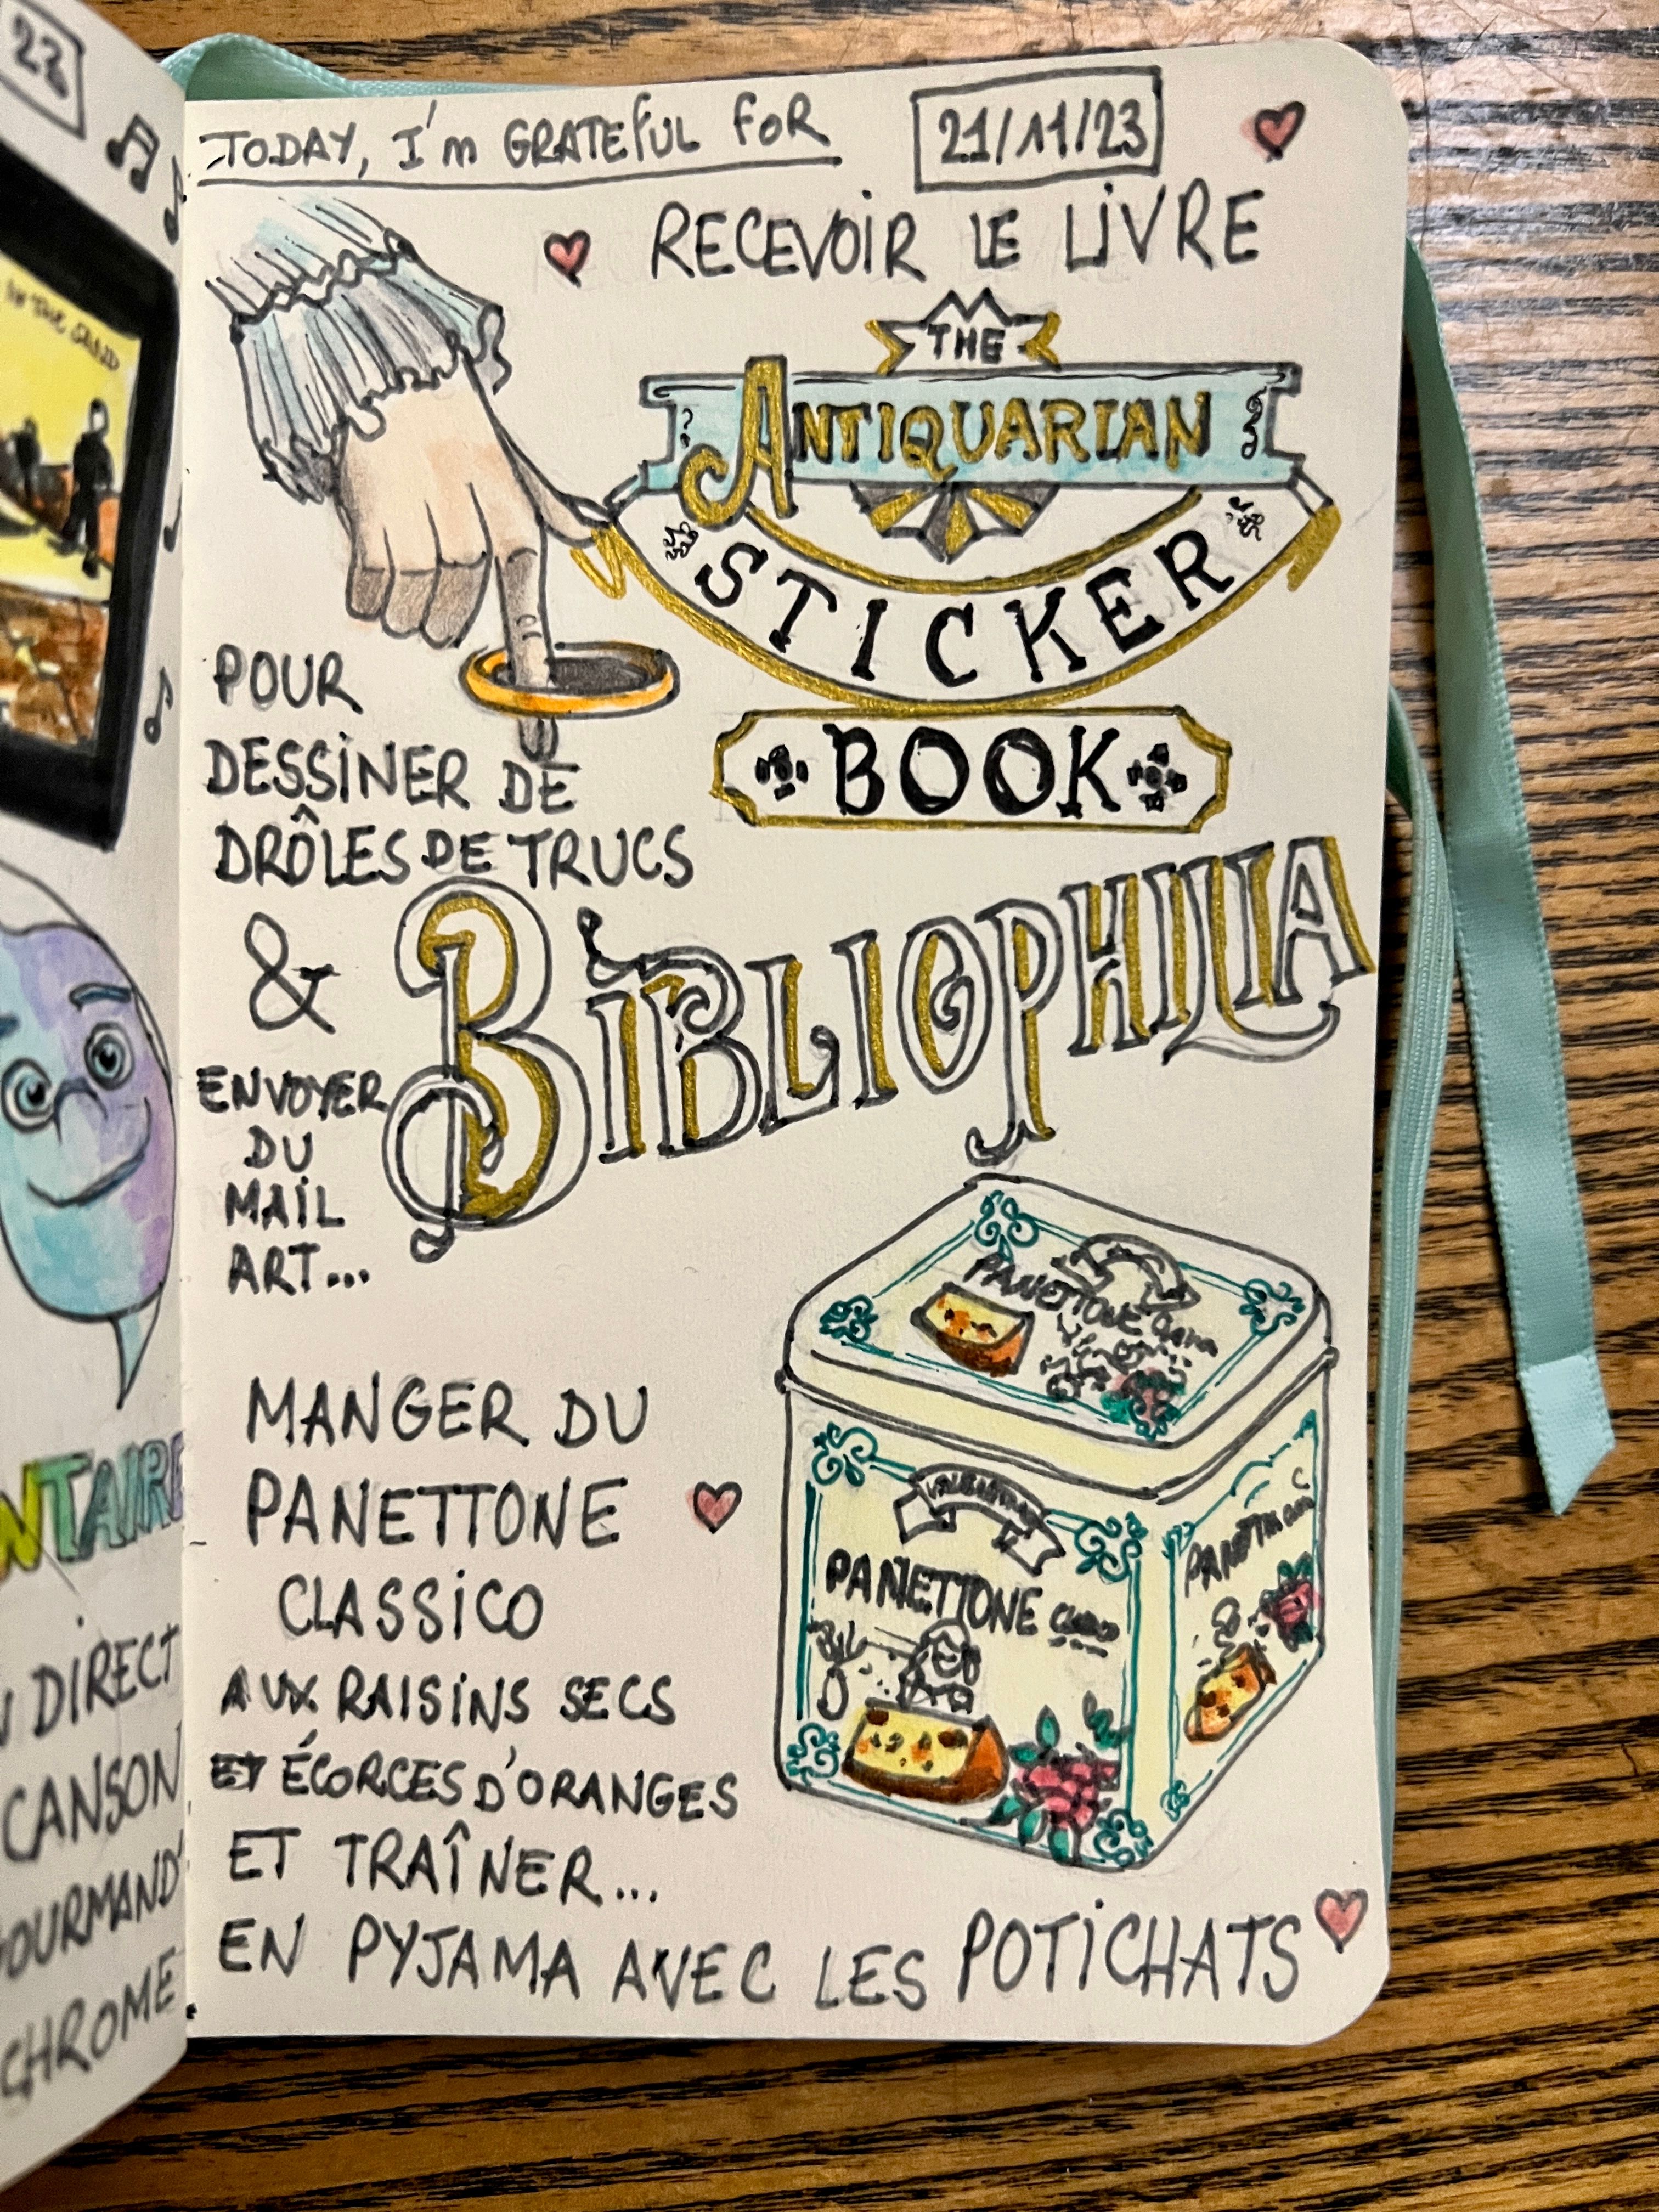 TODAY, I'm GRATEFUL FOR
21/11/23
RECEVOIR LE LIVRE
THE
ANTIQUARIAN
STICKER
BOOK
BIBLIOPHILIA
POUR
DESSINER DE
DRÔLES DE TRUCS
&
ENVOYER
DU
MAIL
ART...
MANGER DU
PANETTONE
CLASSICO
AUX RAISINS SECS
ET ÉCORCES D'ORANGES
ET TRAÎNER...
EN PYJAMA AVEC LES POTICHATS
PANETTONE
PANETTONE
23
IN THE
NTAIRE
DIRECT
CANSON
OURMAND
CHROME